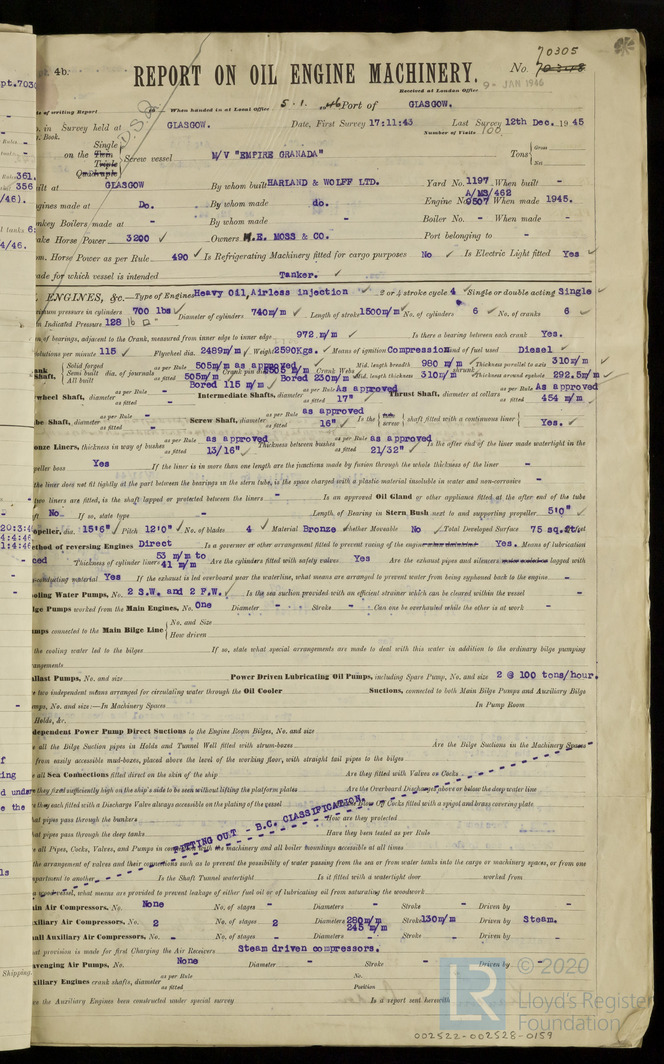 4b.
70305
REPORT ON OIL ENGINE MACHINERY.
No. 70308
Received at London Office
9 - JAN 1946
Date of writing Report
When handed in at Local Office 5.1. 1946 Port of GLASGOW.
No. in Survey held at GLASGOW. Date, First Survey 17:11:43 Last Survey 12th Dec. 1945
Book. Number of Visits 100
on the Single Twin Triple Quadruple Screw vessel M/V "EMPIRE GRANADA" Tons Gross Net
Built at GLASGOW By whom built HARLAND & WOLFF LTD. Yard No. 1197 When built -
Engines made at Do. By whom made do. Engine No. A/MS/462 9507 When made 1945.
Donkey Boilers made at - By whom made - Boiler No. - When made -
Brake Horse Power 3200 Owners H.E. MOSS & CO. Port belonging to -
Nom. Horse Power as per Rule 490 Is Refrigerating Machinery fitted for cargo purposes No Is Electric Light fitted Yes
Trade for which vessel is intended Tanker.
ENGINES, &c.—Type of Engines Heavy Oil, Airless injection 2 or 4 stroke cycle 4 Single or double acting Single
Maximum pressure in cylinders 700 lbs Diameter of cylinders 740m/m Length of stroke 1500m/m No. of cylinders 6 No. of cranks 6
Mean Indicated Pressure 128 lb □"
Span of bearings, adjacent to the Crank, measured from inner edge to inner edge 972 m/m Is there a bearing between each crank Yes.
Revolutions per minute 115 Flywheel dia. 2489m/m Weight 2590Kgs. Means of ignition Compression Kind of fuel used Diesel
Crank Shaft, Solid forged Semi built All built dia. of journals as per Rule 505m/m as approved as fitted 505m/m Bored 115 m/m Crank pin dia. 505 m/m Bored 230m/m Crank Webs Mid. length breadth 980 m/m Mid. length thickness 310m/m shrunk Thickness parallel to axis 310m/m Thickness around eyehole 292.5m/m
Flywheel Shaft, diameter as per Rule - as fitted - Intermediate Shafts, diameter as per Rule As approved as fitted 17" Thrust Shaft, diameter at collars as per Rule As approved as fitted 454 m/m
Tube Shaft, diameter as per Rule - as fitted - Screw Shaft, diameter as per Rule as approved as fitted 16" Is the tube screw shaft fitted with a continuous liner Yes.
Bronze Liners, thickness in way of bushes as per Rule as approved as fitted 13/16" Thickness between bushes as per Rule as approved as fitted 21/32" Is the after end of the liner made watertight in the
propeller boss Yes If the liner is in more than one length are the junctions made by fusion through the whole thickness of the liner -
If the liner does not fit tightly at the part between the bearings in the stern tube, is the space charged with a plastic material insoluble in water and non-corrosive -
If two liners are fitted, is the shaft lapped or protected between the liners - Is an approved Oil Gland or other appliance fitted at the after end of the tube
shaft No If so, state type - Length of Bearing in Stern Bush next to and supporting propeller 5'0"
Propeller, dia. 15'6" Pitch 12'0" No. of blades 4 Material Bronze whether Moveable No Total Developed Surface 75 sq. feet
Method of reversing Engines Direct Is a governor or other arrangement fitted to prevent racing of the engine when declutched Yes. Means of lubrication
forced Thickness of cylinder liners 53 m/m to 41 m/m Are the cylinders fitted with safety valves Yes Are the exhaust pipes and silencers water cooled or lagged with
non-conducting material Yes If the exhaust is led overboard near the waterline, what means are arranged to prevent water from being syphoned back to the engine -
Cooling Water Pumps, No. 2 S.W. and 2 F.W. Is the sea suction provided with an efficient strainer which can be cleared within the vessel -
Bilge Pumps worked from the Main Engines, No. One Diameter - Stroke - Can one be overhauled while the other is at work -
Pumps connected to the Main Bilge Line No. and Size How driven
Is the cooling water led to the bilges If so, state what special arrangements are made to deal with this water in addition to the ordinary bilge pumping
arrangements
Ballast Pumps, No. and size Power Driven Lubricating Oil Pumps, including Spare Pump, No. and size 2 @ 100 tons/hour.
Are two independent means arranged for circulating water through the Oil Cooler Suctions, connected to both Main Bilge Pumps and Auxiliary Bilge
Pumps, No. and size:—In Machinery Spaces In Pump Room
In Holds, &c.
Independent Power Pump Direct Suctions to the Engine Room Bilges, No. and size
Are all the Bilge Suction pipes in Holds and Tunnel Well fitted with strum-boxes Are the Bilge Suctions in the Machinery Spaces
led from easily accessible mud-boxes, placed above the level of the working floor, with straight tail pipes to the bilges
Are all Sea Connections fitted direct on the skin of the ship Are they fitted with Valves or Cocks
Are they fixed sufficiently high on the ship's side to be seen without lifting the platform plates Are the Overboard Discharges above or below the deep water line
Are they each fitted with a Discharge Valve always accessible on the plating of the vessel Are the Blow Off Cocks fitted with a spigot and brass covering plate
What pipes pass through the bunkers How are they protected
What pipes pass through the deep tanks Have they been tested as per Rule
FITTING OUT - B.C. CLASSIFICATION.
Are all Pipes, Cocks, Valves, and Pumps in connection with the machinery and all boiler mountings accessible at all times
Is the arrangement of valves and their connections such as to prevent the possibility of water passing from the sea or from water tanks into the cargo or machinery spaces, or from one
compartment to another Is the Shaft Tunnel watertight Is it fitted with a watertight door worked from
If a wood vessel, what means are provided to prevent leakage of either fuel oil or of lubricating oil from saturating the woodwork
Main Air Compressors, No. None No. of stages - Diameters - Stroke - Driven by -
Auxiliary Air Compressors, No. 2 No. of stages 2 Diameters 280m/m 245 m/m Stroke 130m/m Driven by Steam.
Small Auxiliary Air Compressors, No. - No. of stages - Diameters - Stroke - Driven by -
What provision is made for first Charging the Air Receivers Steam driven compressors.
Scavenging Air Pumps, No. None Diameter - Stroke - Driven by -
Auxiliary Engines crank shafts, diameter as per Rule as fitted No. Position
Have the Auxiliary Engines been constructed under special survey Is a report sent herewith
© 2020
LR Lloyd's Register Foundation
002522-002528-0159